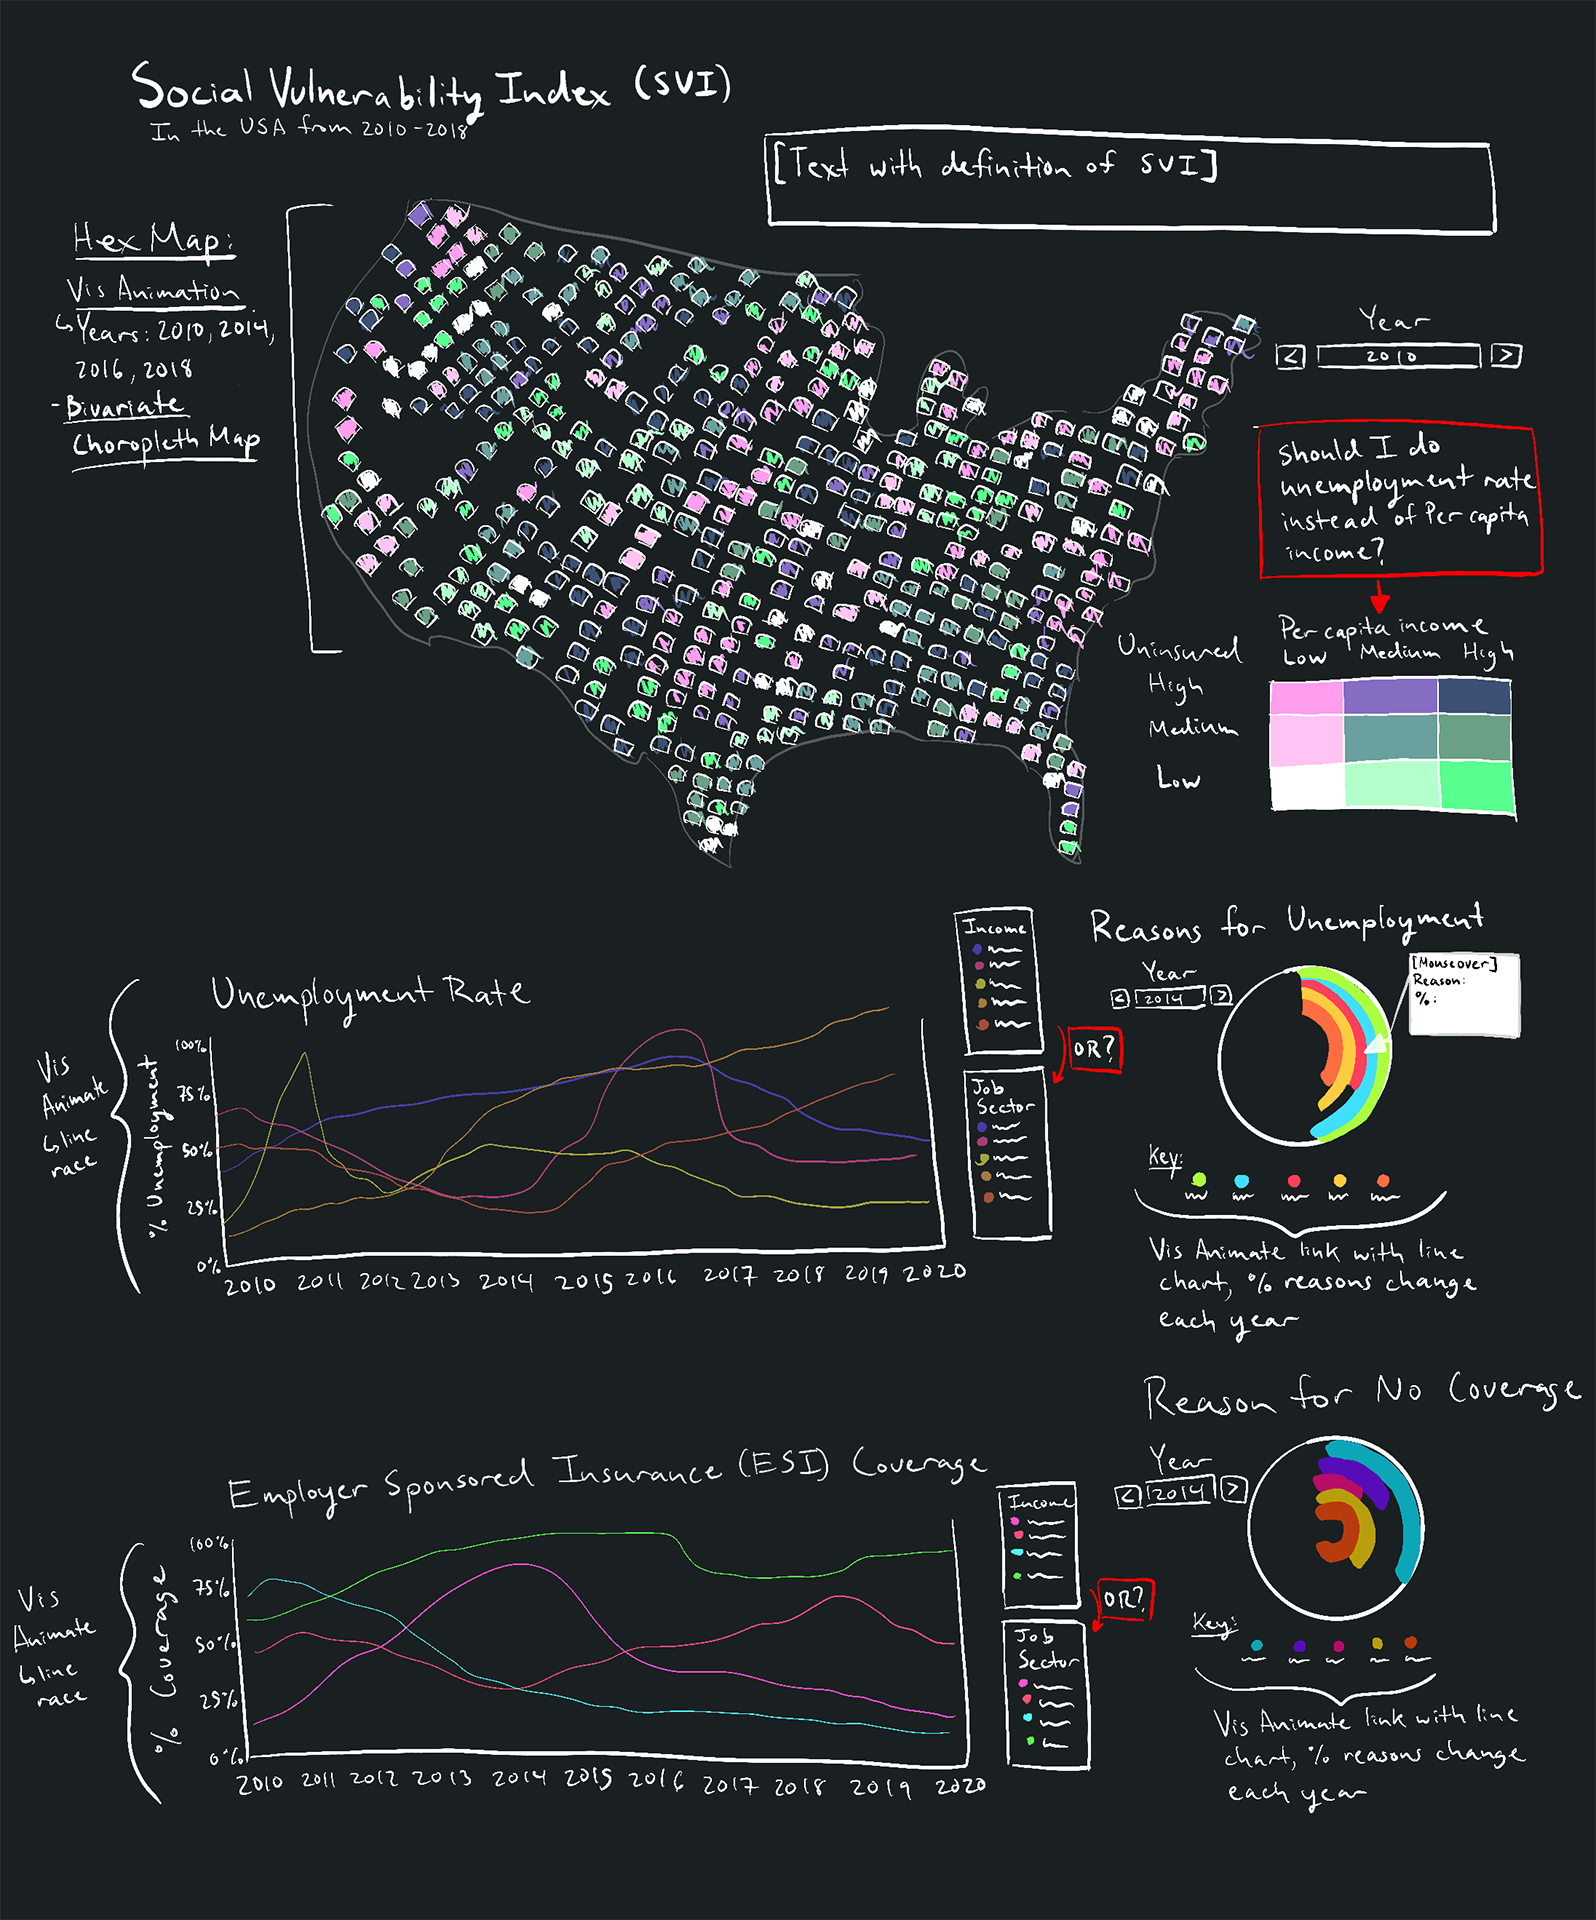 Social Vulnerability Index (SVI)
In the USA from 2010-2018
[Text with definition of SVI]
Hex Map:
Vis Animation
↳ Years: 2010, 2014,
2016, 2018
- Bivariate
Choropleth Map
Year
< 2010 >
Should I do
unemployment rate
instead of Per capita
income?
Per capita income
Uninsured
Low Medium High
High
Medium
Low
Unemployment Rate
Vis
Animate
↳ line
race
% Unemployment
100%
75%
50%
25%
0%
2010 2011 2012 2013 2014 2015 2016 2017 2018 2019 2020
Income
OR?
Job
Sector
Reasons for Unemployment
Year
< 2014 >
[Mouseover]
Reason:
%:
Key:
Vis Animate link with line
chart, % reasons change
each year
Employer Sponsored Insurance (ESI) Coverage
Vis
Animate
↳ line
race
% Coverage
100%
75%
50%
25%
0%
2010 2011 2012 2013 2014 2015 2016 2017 2018 2019 2020
Income
OR?
Job
Sector
Reason for No Coverage
Year
< 2014 >
Key:
Vis Animate link with line
chart, % reasons change
each year